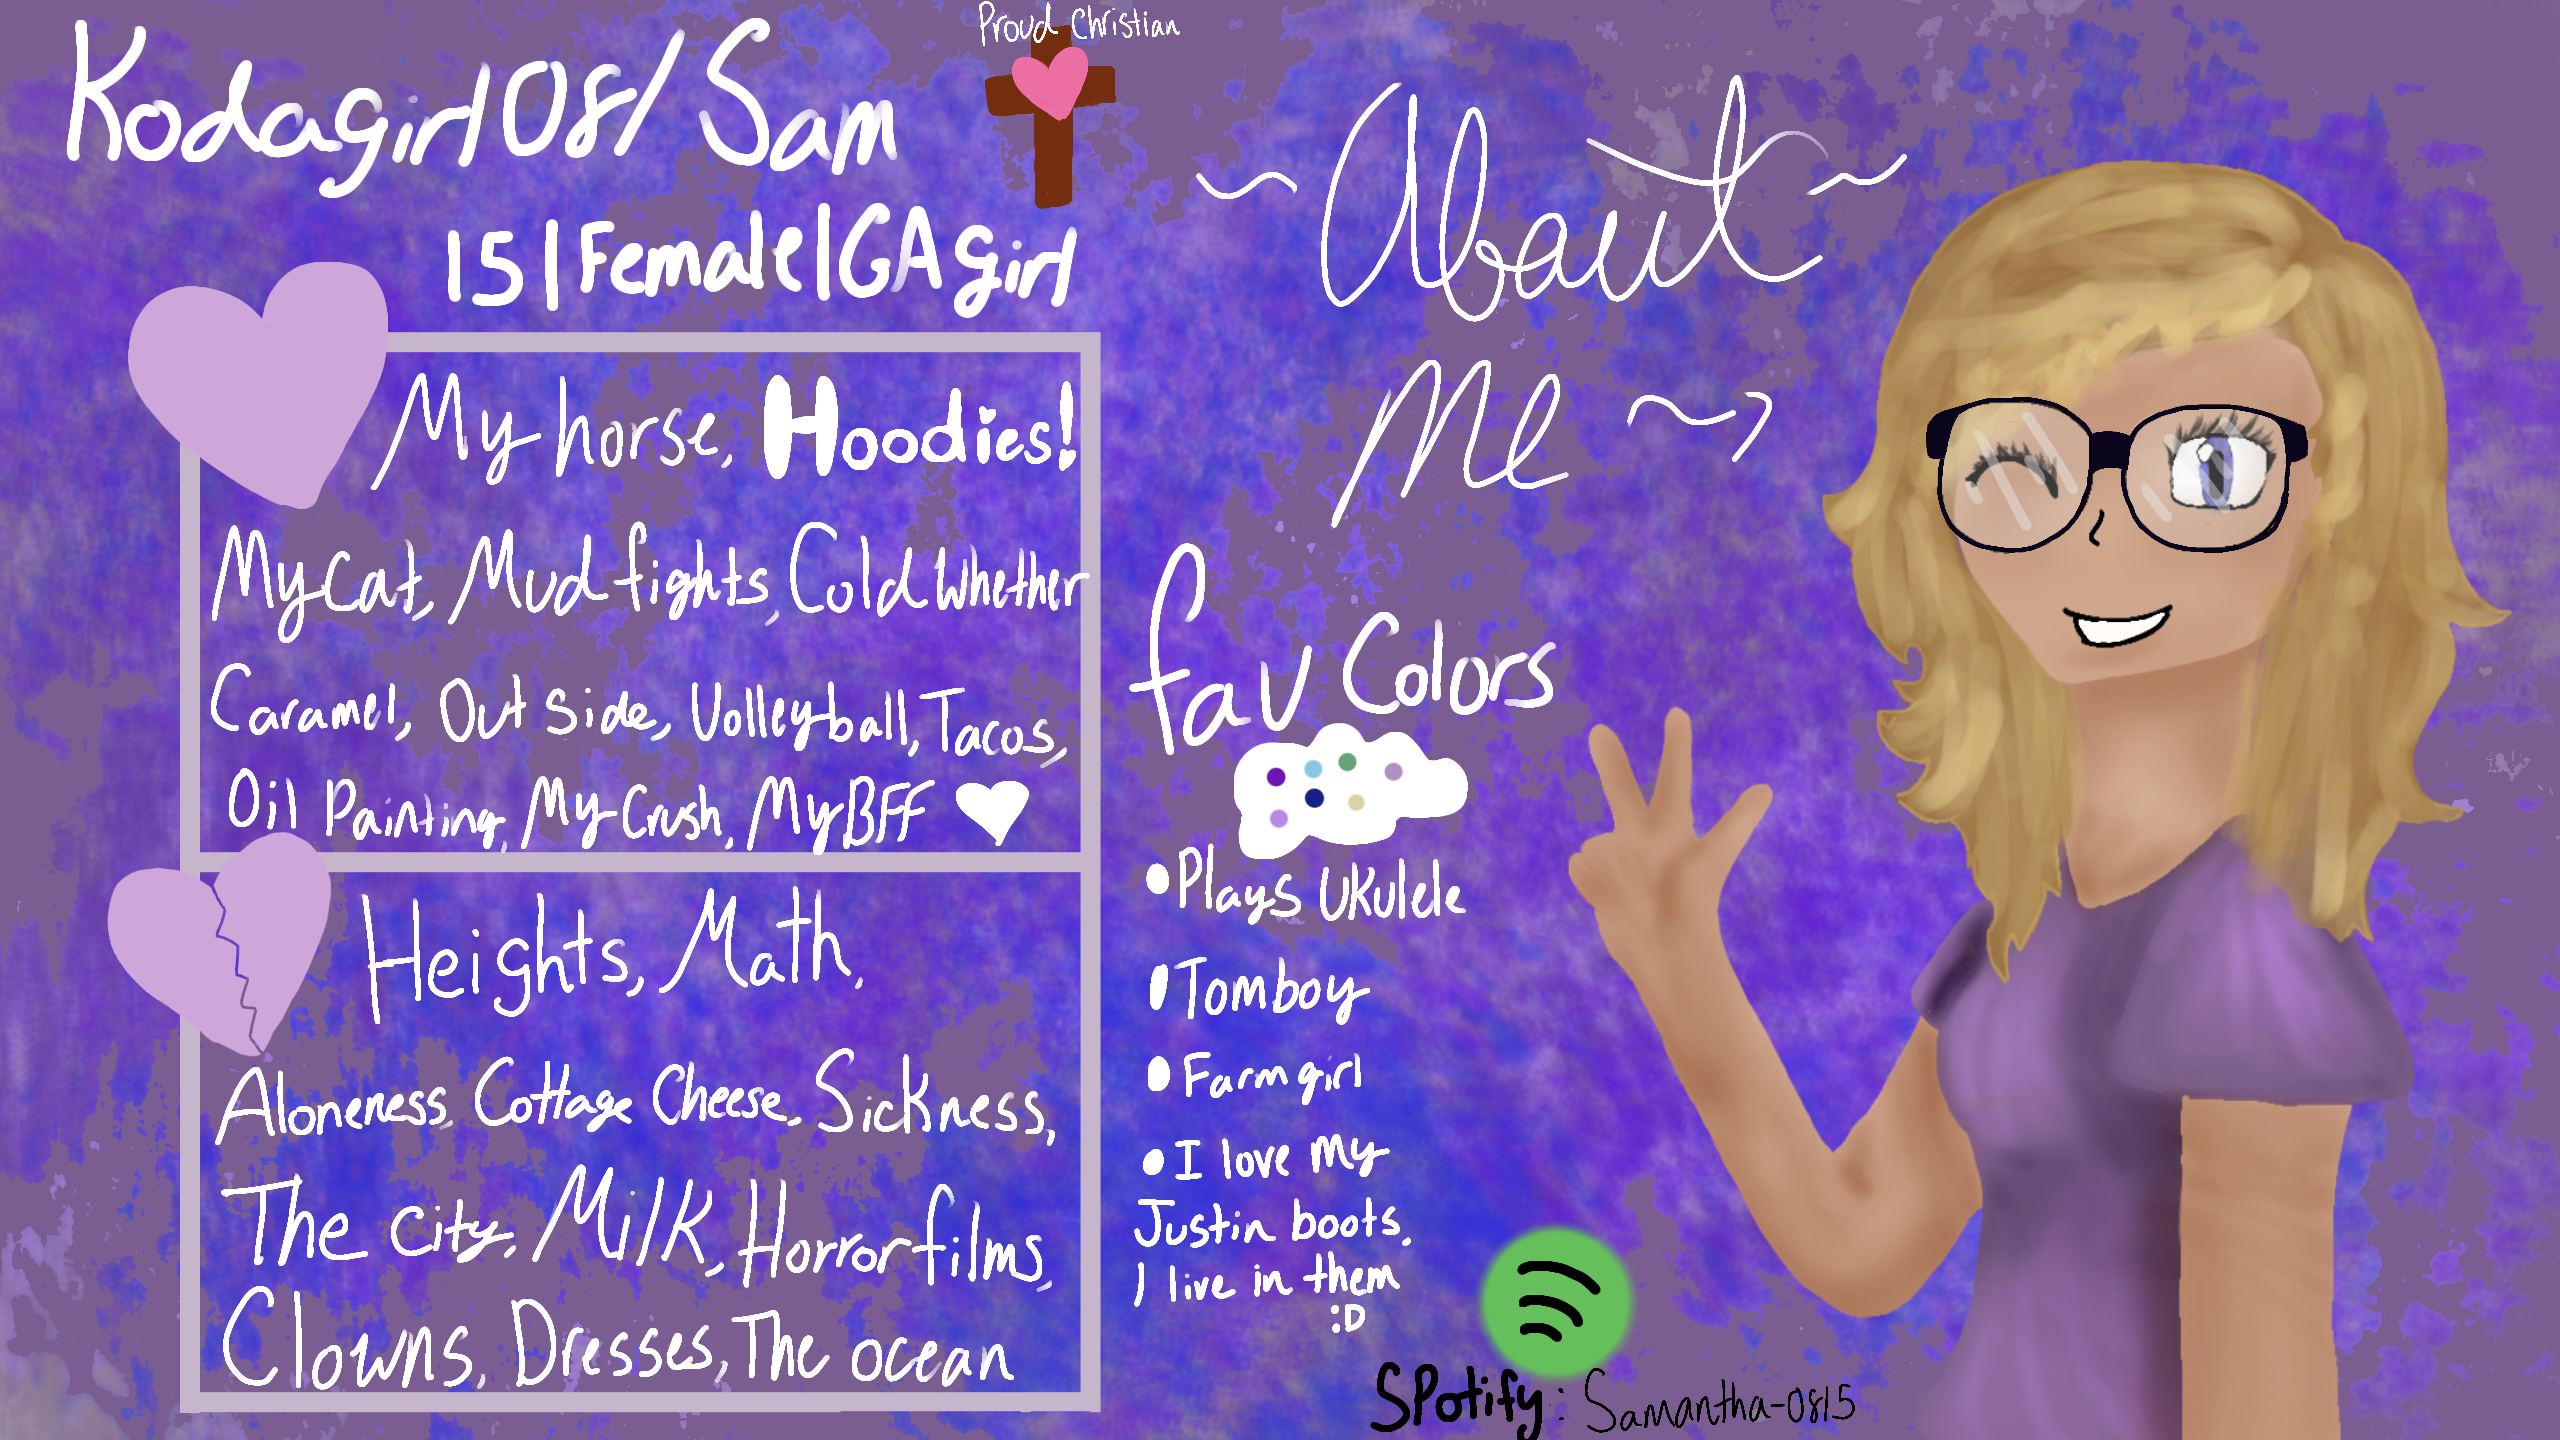 Proud Christian
Kodagirl08/Sam
15|Female|GA girl
My horse, Hoodies!
My cat, Mud fights, Cold Whether
Caramel, Out side, Volleyball, Tacos,
Oil Painting, My Crush, My BFF
Heights, Math,
Aloneness, Cottage Cheese, Sickness,
The city, Milk, Horror films,
Clowns, Dresses, The ocean
~About~
Me ~>
fav Colors
•Plays Ukulele
•Tomboy
•Farm girl
•I love my
Justin boots,
I live in them
:D
SPotify: Samantha-0815